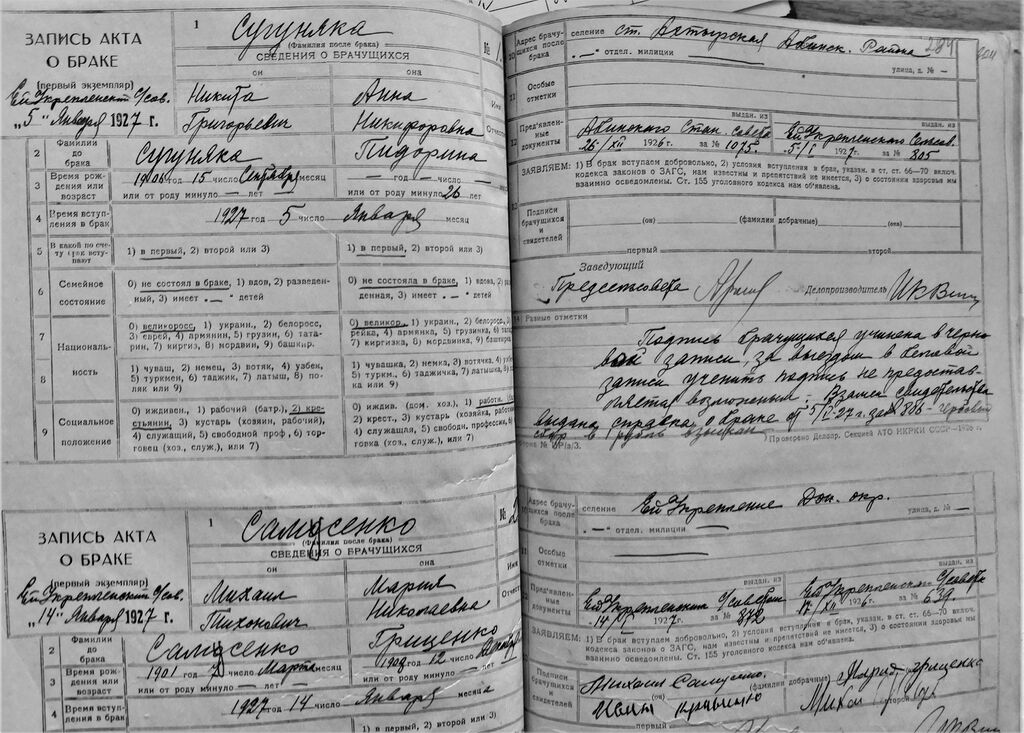 ЗАПИСЬ АКТА
О БРАКЕ
(первый экземпляр)
Ей Укрепленский с/сов.
„5" Января 1927 г.
1
Сугуняка
(Фамилия после брака)
№ 1
СВЕДЕНИЯ О БРАЧУЩИХСЯ
он
она
Никита
Анна
Григорьевич
Никифоровна
2 Фамилии до брака
Сугуняка
Пидорина
3 Время рождения или возраст
1906 год 15 число Сентября месяц
— год — число —
или от роду минуло — лет
или от роду минуло 26 лет
4 Время вступления в брак
1927 год 5 число Января месяц
5 В какой по счету брак вступают
1) в первый, 2) второй или 3)
1) в первый, 2) второй или 3)
6 Семейное состояние
0) не состояла в браке, 1) вдов, 2) разведенный, 3) имеет „—" детей
0) не состояла в браке, 1) вдова, 2) разведенная, 3) имеет „—" детей
7 Националь-
0) великоросс, 1) украин., 2) белоросс, 3) еврей 4) армянин, 5) грузин, 6) татарин, 7) киргиз, 8) мордвин, 9) башкир.
0) великор., 1) украин., 2) белорос
рейка, 4) армянка, 5) грузинка, 6) та
7) киргизка, 8) мордвинка, 9) башкир
8 ность
1) чуваш, 2) немец, 3) вотяк, 4) узбек, 5) туркмен, 6) таджик, 7) латыш, 8) поляк или 9)
1) чувашка, 2) немка, 3) вотячка, 4) узб
5) туркм., 6) таджичка, 7) латышка, 8)
ка или 9)
9 Социальное положение
0) иждивен., 1) рабочий (батр.), 2) крестьянин, 3) кустарь (хозяин, рабочий), 4) служащий, 5) свободной проф, 6) торговец (хоз., служ.), или 7)
0) иждив. (дом. хоз.), 1) работн.
2) крест., 3) кустарь (хозяйка, работни
4) служащая, 5) свободн. профессии, 6)
говка (хоз., служ.), или 7)
Адрес брачущихся после брака
селение ст. Ахтырская Абинск. Района
„—" отдел. милиции
улица, д. № —
11 Особые отметки
12 Пред'явленные документы
выдан. из
Абинского Стан. совета
25/XII 1926 г. за № 1075
выдан. из
Ей Укрепленского Сельсов.
5/I 1927 г. за № 805
ЗАЯВЛЯЕМ: 1) В брак вступаем добровольно, 2) условия вступления в брак, указан. в ст. ст. 66—70 включ.
кодекса законов о ЗАГС, нам известны и препятствий не имеется, 3) о состоянии здоровья мы
взаимно осведомлены. Ст. 155 уголовного кодекса нам об'явлена.
Подписи брачущихся и свидетелей
(он)
(фамилии добрачные)
(она)
первый
второй
Заведующий
Предсельсовета
Делопроизводитель
14 Разные отметки
Подпись брачущихся учинена в черно
вой записи, за выездом в беловой
записи ученить подпись не предостав-
ляется возможным. Взамен свидетельства
выдана справка о браке от 5/I-27 г. за № 806
Проверено Делопр. Секцией АТО НКРКИ СССР—1926 г.
ЗАПИСЬ АКТА
О БРАКЕ
(первый экземпляр)
Ей Укрепленский с/сов.
„14" Января 1927 г.
1
Самусенко
(Фамилия после брака)
№ 2
СВЕДЕНИЯ О БРАЧУЩИХСЯ
он
она
Михаил
Мария
Тихонович
Николаевна
2 Фамилии до брака
Самусенко
Гриценко
3 Время рождения или возраст
1901 год число Марта месяц
число
или от роду минуло — лет
или от роду минуло лет
4 Время вступления в брак
1927 год 14 число Января месяц
1) в первый, 2) второй или 3)
Адрес брачущихся после брака
селение Ей Укрепление Дон. окр.
„—" отдел. милиции
улица, д. № —
Особые отметки
Пред'явленные документы
выдан. из
Ей Укрепленским с/советом
14/I 1927 г. за № 842
выдан. из
Ей Укрепленским с/советом
17/XII 1926 г. за № 639
ЗАЯВЛЯЕМ: 1) В брак вступаем добровольно, 2) условия вступления в брак, указан. в ст. ст. 66—70 включ.
кодекса законов о ЗАГС, нам известны и препятствий не имеется, 3) о состоянии здоровья мы
взаимно осведомлены. Ст. 155 уголовного кодекса нам об'явлена.
Подписи брачущихся и свидетелей
(он)
(фамилии добрачные)
Гриценко
первый
второй